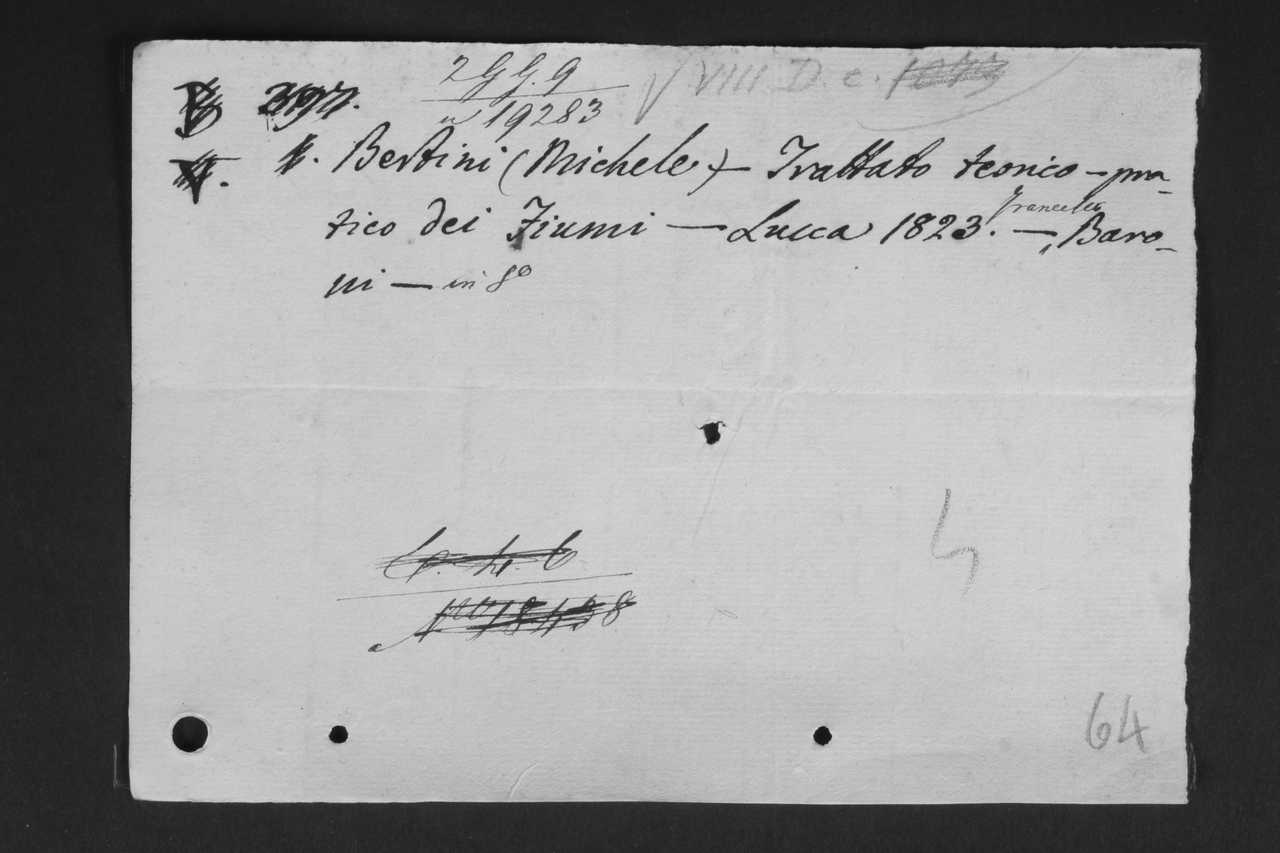 2 G G. 9
397. n 19283
√ VIII D. c.
1. Bertini (Michele) — Trattato teorico-pra-
tico dei Fiumi — Lucca 1823. — Francesco Baro-
ni — in 8º
4
64